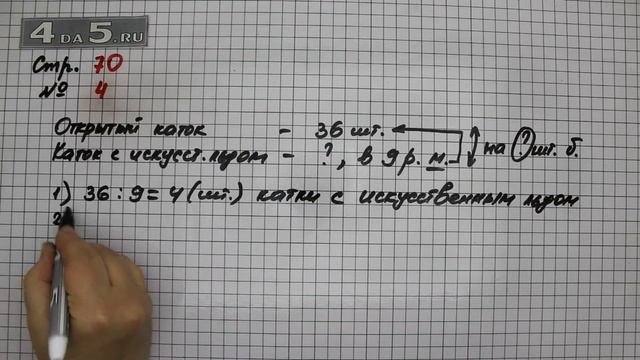 4 DA 5.RU
Стр. 70
№ 4
Открытый каток - 36 шт.
Каток с искусст. льдом - ?, в 9 р. м. на ? шт. б.
1) 36 : 9 = 4 (шт.) катки с искусственным льдом
2